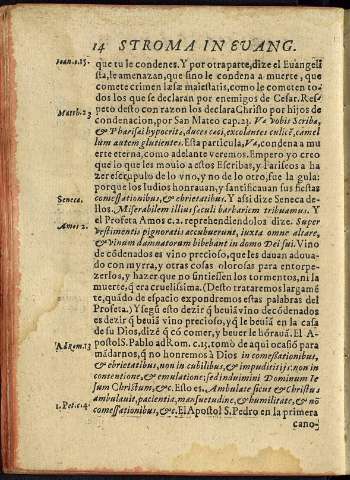 14 STROMA IN EVANG.
Ioan. 1. 15.
que tu le condenes. Y por otra parte, dize el Euangeli
sta, le amenazan, que sino le condena a muerte, que
comete crimen læsæ maiestatis, como le cometen to
dos los que se declaran por enemigos de Cesar. Res
neto desto con razon los declara Christo por hijos de
Matth. 23
condenacion, por San Mateo cap. 23. Væ vobis Scribæ,
& Pharisæi hypocritæ, duces cæci, excolantes culicẽ, camel
lum autem glutientes. Esta particula, Væ, condena a mu
erte eterna, como adelante veremos. Empero yo creo
que lo que les mouio a estos Escribas, y Fariseos a ha
zer escrupulo de lo vno, y no de lo otro, fue la gula:
porque los Iudios honrauan, y santificauan sus fiestas
Seneca.
comessationibus, & ebrietatibus. Y assi dize Seneca de-
llos. Miserabilem illius seculi barbariem tribuamus. Y
Amos 2.
el Profeta Amos c. 2. reprehendiendolos dize. Super
vestimentis pignoratis accubuerunt, iuxta omne altare,
& vinum damnatorum bibebant in domo Dei sui. Vino
de cõdenados es vino precioso, que les dauan adoua-
do con myrra, y otras cosas olorosas para entorpe-
zerlos, y hazer que no sintiessen los tormentos, ni la
muerte, q̃ era cruelissima. (Desto trataremos largamẽ
te, quãdo de espacio expondremos estas palabras del
Profeta.) Y segũ esto dezir q̃ beuiã vino de cõdenados
es dezir q̃ beuiã vino precioso, y q̃ le beuiã en la casa
de su Dios, dize q̃ cõ comer, y beuer le hõrauã. El A-
Ad Rom. 13
postol S. Pablo ad Rom. c. 13. tomò de aqui ocasiõ para
mãdarnos, q̃ no honremos à Dios in comessationibus,
& ebrietatibus, non in cubilibus, & impuditijs: non in
contentione, & emulatione; sed induimini Dominum Ie
sum Christum, &c. Esto es. Ambulate sicut & Christus
ambulauit, pacientia, mansuetudine, & humilitate, & nõ
1. Pet. c. 4.
comessationibus, &c. El Apostol S. Pedro en la primera
cano-